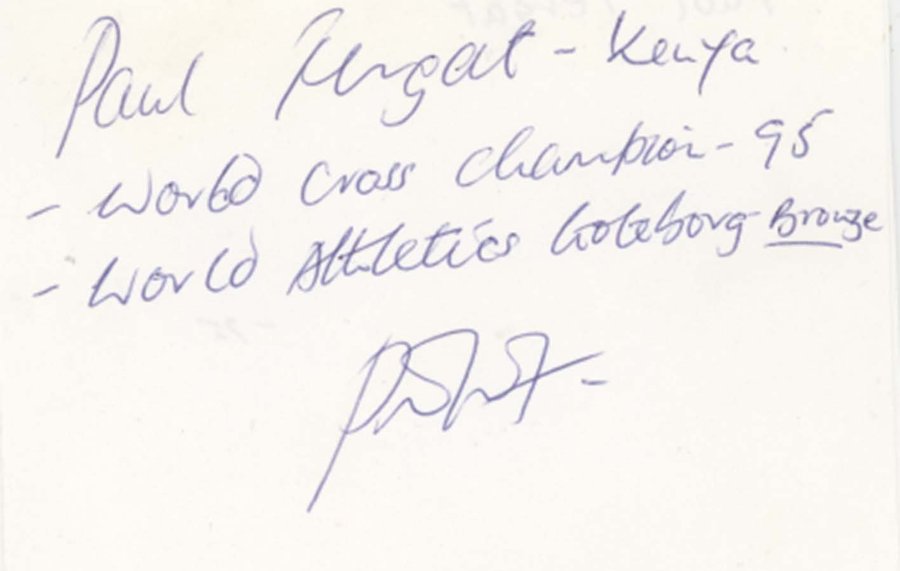 Paul Tergat - Kenya
- World Cross Champion - 95
- World Athletics Goteborg - Bronze